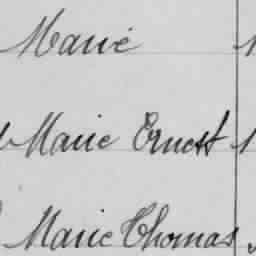 Marie
Marie Ernest
Marie Thomas